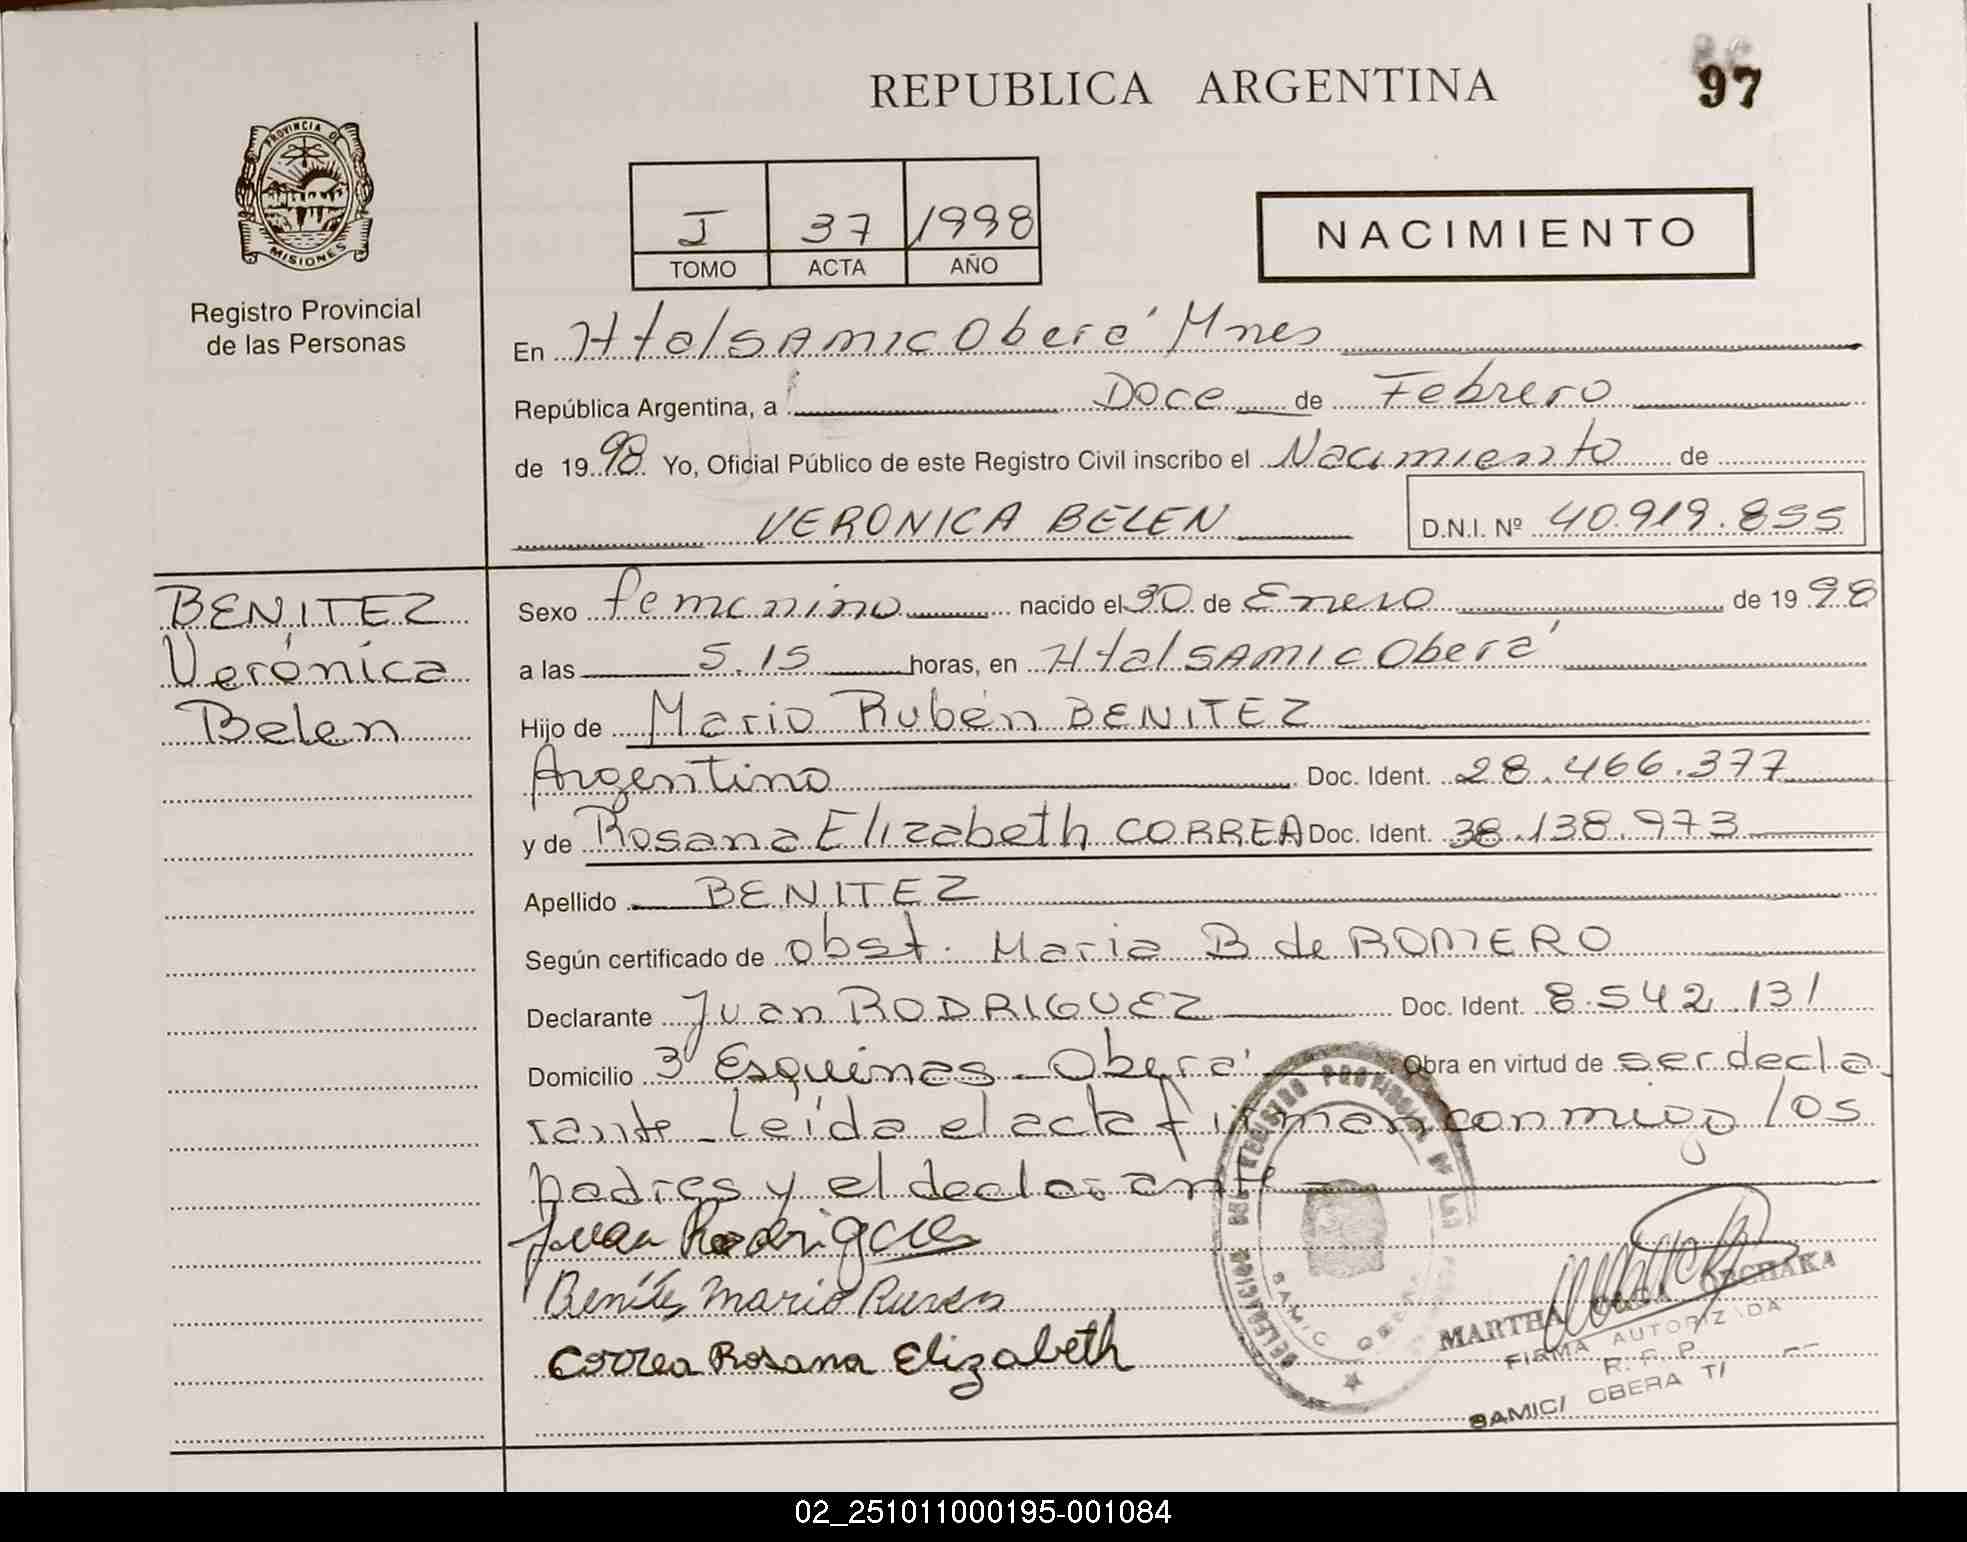 REPUBLICA ARGENTINA
97
PROVINCIA DE
MISIONES
Registro Provincial
de las Personas
I 37 1998
TOMO ACTA AÑO
NACIMIENTO
En Htal SAMIC Oberá Mnes
República Argentina, a Doce de Febrero
de 1998 Yo, Oficial Público de este Registro Civil inscribo el Nacimiento de
VERONICA BELEN D.N.I. Nº 40.919.855
BENITEZ
Verónica
Belen
Sexo femenino nacido el 30 de Enero de 1998
a las 5.15 horas, en Htal SAMIC Oberá
Hijo de Mario Rubén BENITEZ
Argentino Doc. Ident. 28.466.377
y de Rosana Elizabeth CORREA Doc. Ident. 38.138.973
Apellido BENITEZ
Según certificado de obst. Maria B de ROMERO
Declarante Juan RODRIGUEZ Doc. Ident. 8.542.131
Domicilio 3 Esquinas - Oberá Obra en virtud de ser decla
rante - Leída el acta firman conmigo los
padres y el declarante
Juan Rodrigues
Benítes Mario Ruven
Correa Rosana Elizabeth
DELEGACION DEL REGISTRO PROVINCIAL DE LAS
SAMIC OBERA
MARTHA OLGA
FIRMA AUTORIZADA
R. P. P.
SAMIC/ OBERA
02_251011000195-001084